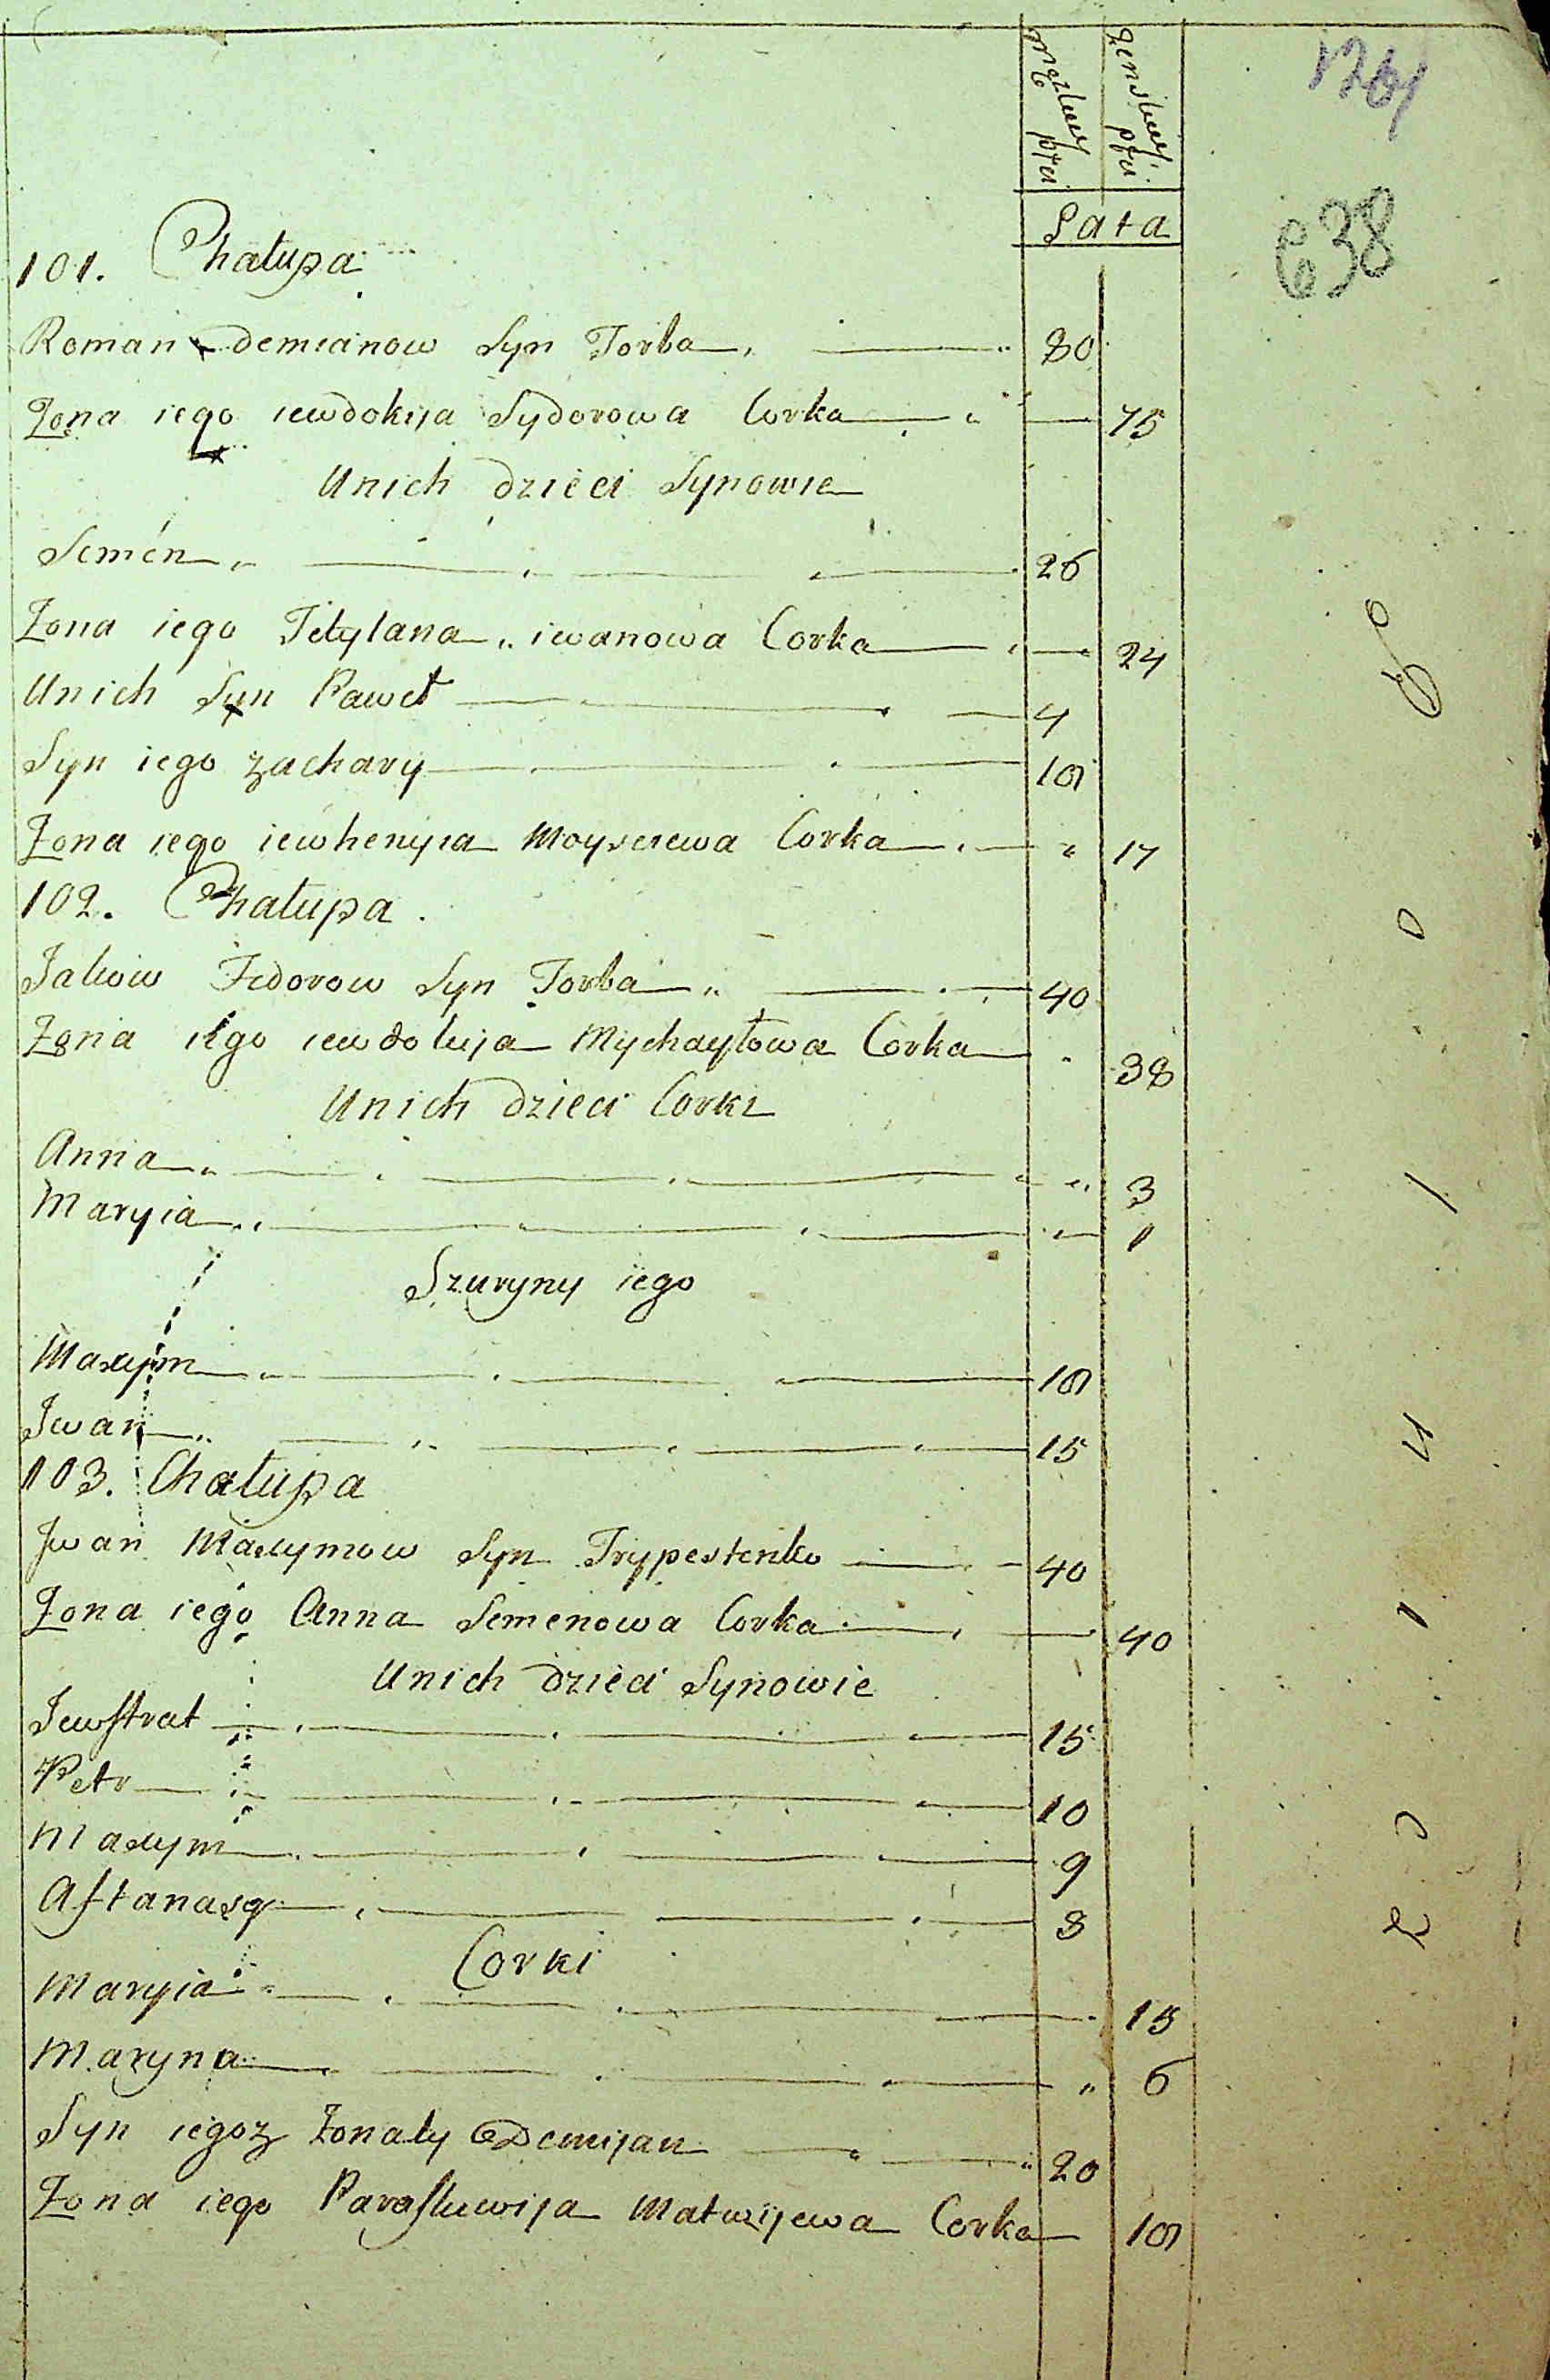 męzkiey płci
żenskiey płci
Lata
638
101. Chałupa
Roman demianow Syn Torba 80
Żona iego iewdokija Sydorowa Corka 75
Unich dzieci Synowie
Semen 26
Żona iego Tetylana iwanowa Corka 24
Unich Syn Paweł 4
Syn iego zachary 19
Żona iego iewhenyia Moyseiewa Corka 17
102. Chałupa
Jakow Fedorow Syn Torba 40
Żona iego iewdokija Mychayłowa Corka 38
Unich dzieci Corki
Anna 3
Maryia 1
Szuryny iego
Maxym 19
Iwan 15
103. Chałupa
Iwan Maxymow Syn Trypestenko 40
Żona iego Anna Semenowa Corka 40
Unich dzieci Synowie
Jewstrat 15
Petr 10
Maxym 9
Aftanasy 8
Corki
Maryia 15
Maryna 6
Syn iegoz Żonaty Demijan 20
Żona iego Paraskewija Matwijewa Corka 19